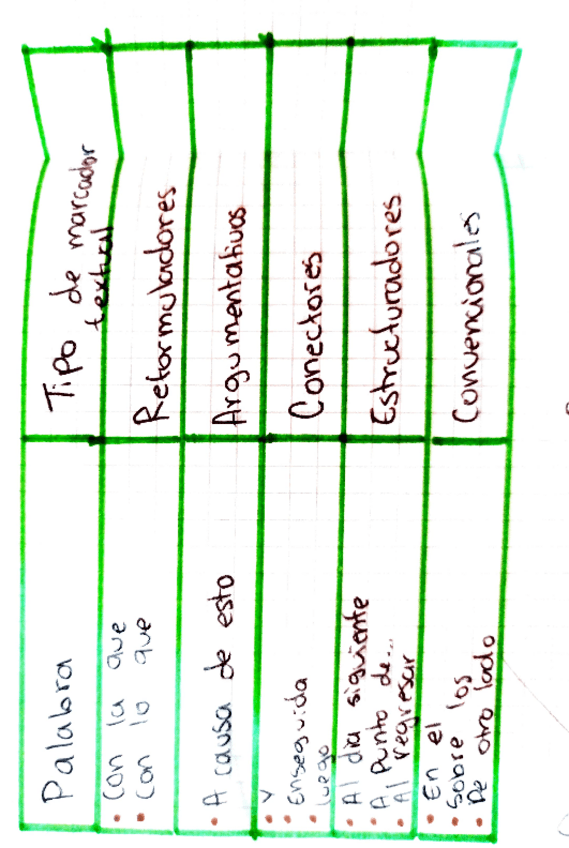 Palabra
Tipo de marcador
textual
• Con la que
• Con lo que
Reformuladores
• A causa de esto
Argumentativos
• Y
• Enseguida
• luego
Conectores
• Al día siguiente
• A Punto de...
• Al regresar
Estructuradores
• En el
• Sobre los
• De otro lado
Convencionales